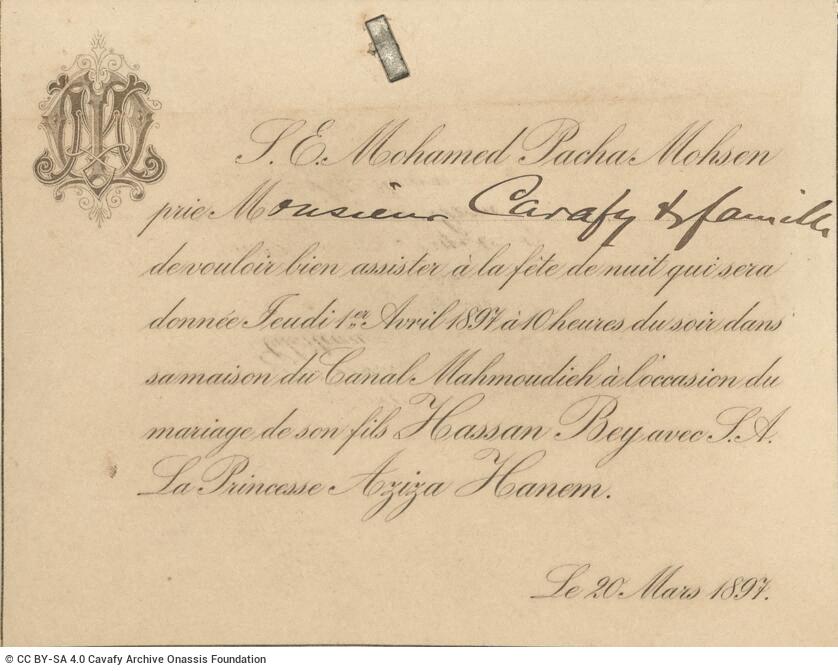 S. E. Mohamed Pacha Mohsen
prie Monsieur Cavafy & famille
de vouloir bien assister à la fête de nuit qui sera
donnée Jeudi 1er Avril 1897 à 10 heures du soir dans
sa maison du Canal Mahmoudieh à l'occasion du
mariage de son fils Hassan Bey avec S. A.
La Princesse Aziza Hanem.
Le 20 Mars 1897.
© CC BY-SA 4.0 Cavafy Archive Onassis Foundation